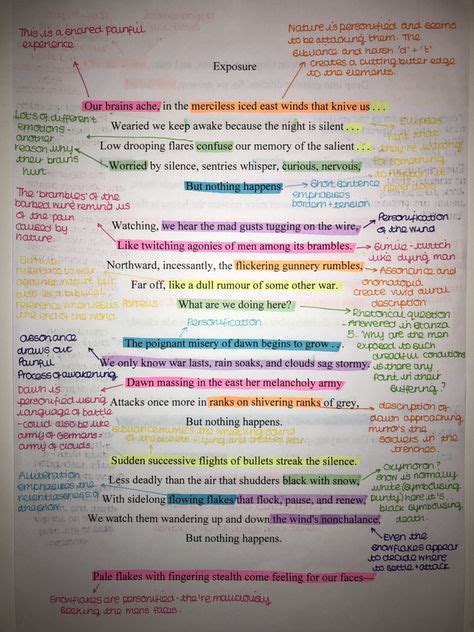 This is a shared painful
experience
Nature is personified and seems
to be attacking them. The
sibilance and harsh 'd' + 't'
creates a cutting bitter edge
to the elements.
Exposure
Our brains ache, in the merciless iced east winds that knive us . . .
Wearied we keep awake because the night is silent . . .
Low drooping flares confuse our memory of the salient . . .
Worried by silence, sentries whisper, curious, nervous,
But nothing happens.
Lots of different
emotions -
another
reason why
their brains
hurt
Ellipses
hint that
they're waiting
for something
to happen
Short sentence
emphasises
boredom + tension
Watching, we hear the mad gusts tugging on the wire,
Like twitching agonies of men among its brambles.
Northward, incessantly, the flickering gunnery rumbles,
Far off, like a dull rumour of some other war.
What are we doing here?
The 'brambles' of the
barbed wire remind us
of the pain
caused by
nature.
Personification
of the wind
Simile - twitch
like dying man
Assonance and
onomatopoeia
create vivid aural
description
reference to war
against nature but
also is a biblical
reference when Jesus
the end of the world
Rhetorical question
- Answered in stanza
5. Why are the men
exposed to such
dreadful conditions
- is there any
point in their
suffering?
Personification
The poignant misery of dawn begins to grow . . .
We only know war lasts, rain soaks, and clouds sag stormy.
Dawn massing in the east her melancholy army
Attacks once more in ranks on shivering ranks of grey,
But nothing happens.
assonance
draws out
painful
process of awakening
Dawn is
personified using
language of battle
- could also be the
army of Germans
army of clouds.
description of
dawn approaching
mirrors the
soldiers in the
trenches.
Sibilance mimics the whistling sound
of the bullets flying and create fear
Sudden successive flights of bullets streak the silence.
Less deadly than the air that shudders black with snow,
With sidelong flowing flakes that flock, pause, and renew,
We watch them wandering up and down the wind's nonchalance,
But nothing happens.
Alliteration
emphasises the
relentlessness of
the snow.
oxymoron?
snow is normally
white (symbolising
purity) here it's
black symbolising
death.
Even the
snowflakes appear
to decide where
to settle + attack
Pale flakes with fingering stealth come feeling for our faces—
Snowflakes are personified - the're maliciously
seeking the mens faces.